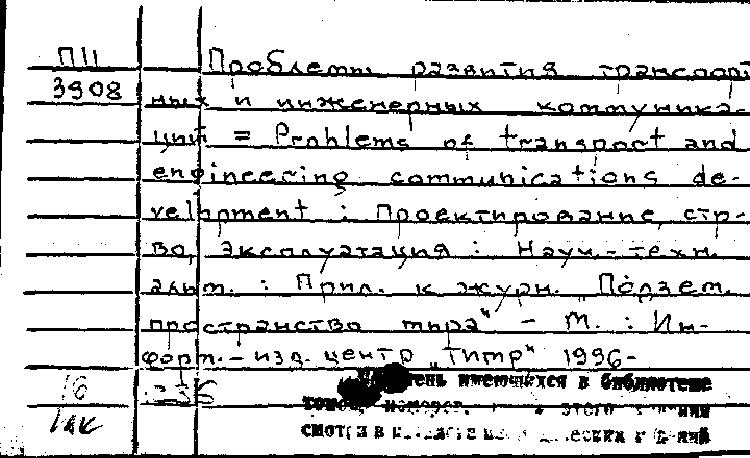 П11 Проблемы развития транспорт
3908 ных и инженерных коммуника-
ций = Problems of transport and
engineering communications de-
velopment : Проектирование, стр-
во, эксплуатация : Науч.-техн.
альм. : Прил. к журн. „Подзем.
пространство мира“ – М. : Ин-
форм.-изд. центр „Тимр“ 1996-
16
имеющихся в библиотеке
томов, номеров, этого издания
смотри в